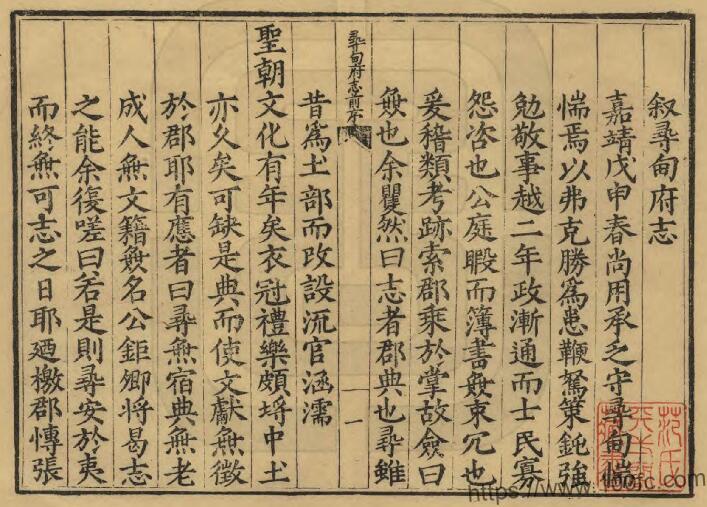 叙尋甸府志
嘉靖戊申春尚用承乏守尋甸惴
惴焉以弗克勝為患鞭駑策鈍強
勉敬事越二年政漸通而士民寡
怨咨也公庭暇而簿書無束冗也
爰稽類考跡索郡乘於掌故僉曰
無也余矍然曰志者郡典也尋雖
尋甸府志前序
一
昔為土部而改設流官涵濡
聖朝文化有年矣衣冠禮樂頗埓中土
亦久矣可缺是典而使文獻無徵
於郡耶有應者曰尋無宿典無老
成人無文籍無名公鉅卿將曷志
之能余復嗟曰若是則尋安於夷
而終無可志之日耶廼檄郡慱張